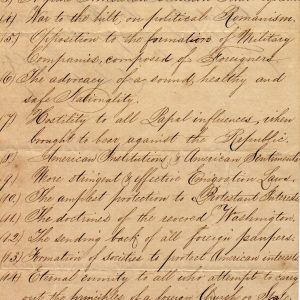 4) War to the hilt, on political Romanism.
5) Opposition to the formation of Military
Companies, composed of Foreigners.
6) The advocacy of a sound, healthy and
safe Nationality.
7) Hostility to all Papal influences, when
brought to bear against the Republic.
8) American Institutions & American Sentiments
9) More stringent & effective Emigration Laws.
10) The amplest protection to Protestant Interests
11) The doctrines of the revered Washington.
12) The sending back of all foreign paupers.
13) Formation of societies to protect American interests
14) Eternal enmity to all who attempt to carry
out the principles of a foreign Church or